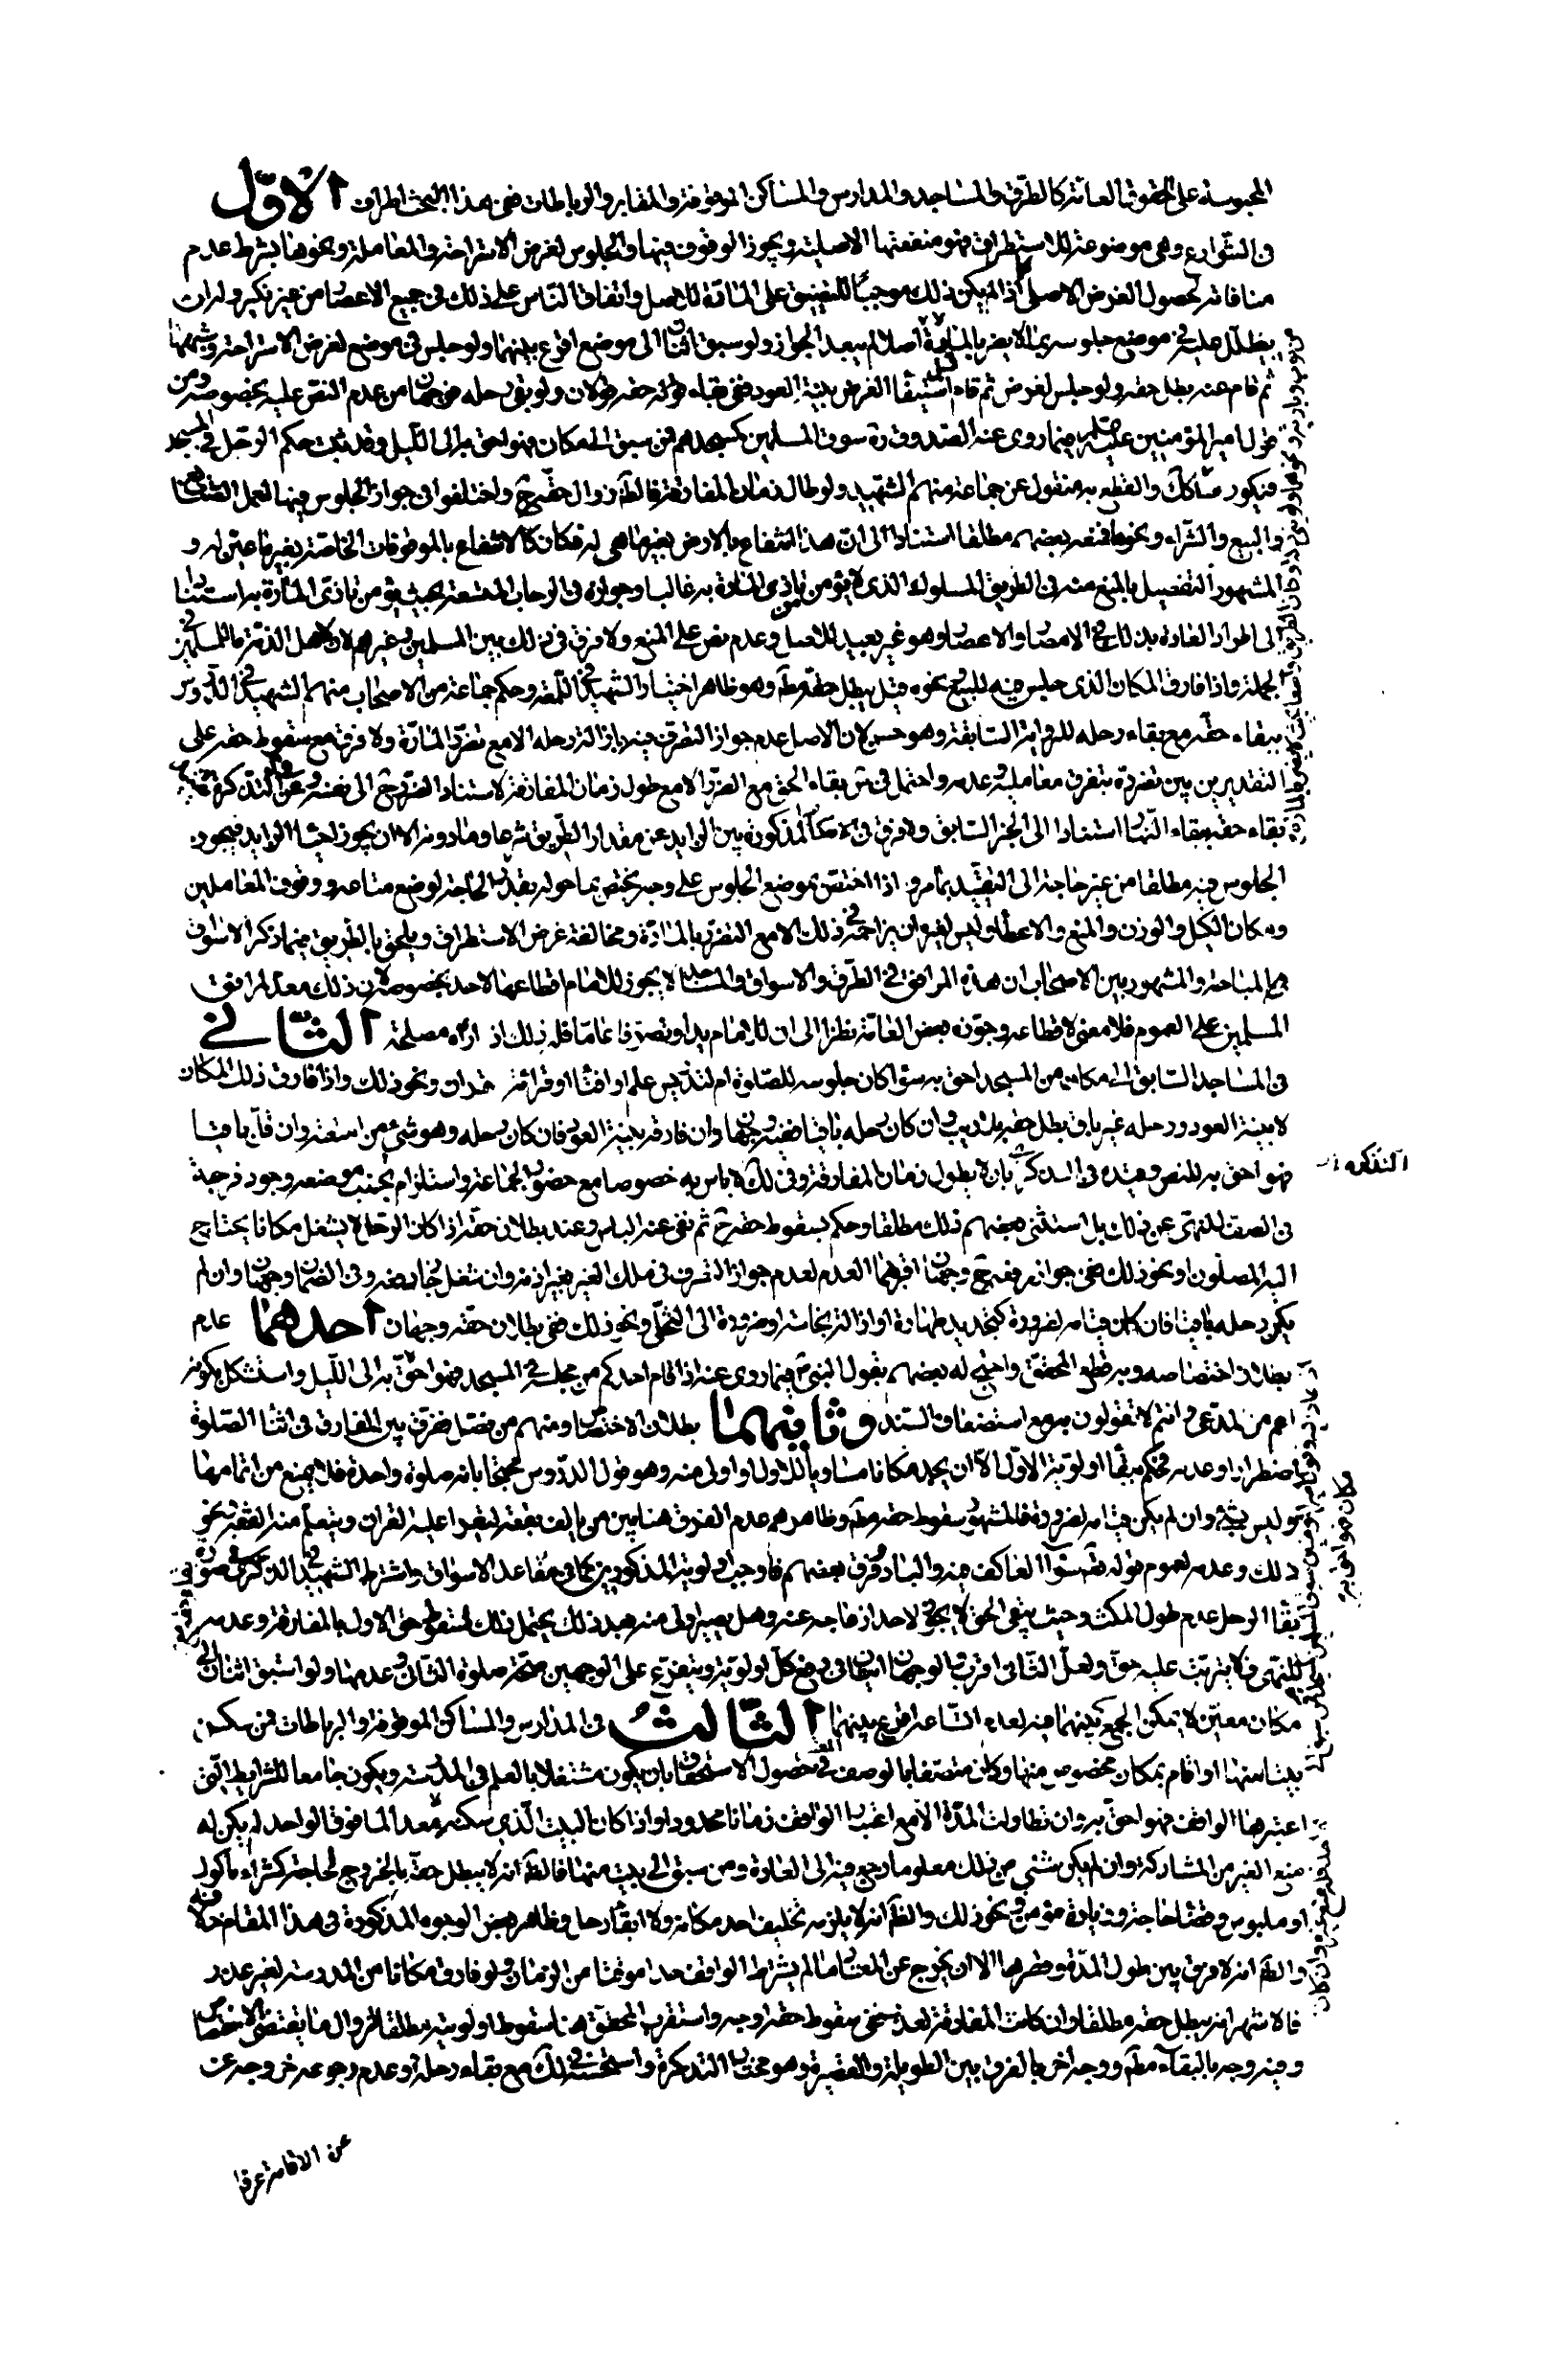 المحبوسة على الحقوق العامة كالطرق والمساجد والمدارس والمساكن الموقوفة والمقابر والرباطات ففي هذا البحث اطراف الاوّل
فى الشوارع وهى موضوعة للاستطراق فهو منفعتها الاصلية ويجوز الوقوف فيها والجلوس لغرض الاستراحة والمعاملة ونحوها بشرط عدم
منافاته لحصول الغرض الاصلى اذا لم يكن ذلك موجبا للتضييق على المارّة للاصل واتفاق الناس على ذلك فى جميع الاعصار من غير نكير ولو ان
يظلل عليه فى موضع جلوسه بما لا يضر بالمارة اصلا لم يبعد الجواز ولو سبق اثنان الى موضع اقرع بينهما ولو جلس فى موضع لغرض الاستراحة وشبهها
ثم قام عنه بطل حقه ولو جلس لغرض ثم قام قبل استيفاء الغرض بنية العود ففى بقاء حقه قولان ولو بقى رحله فوجهان من عدم النص عليه بخصوصه ومن
قول امير المؤمنين عليه السلام فيما روى عنه الصدوق ره سوق المسلمين كمسجدهم فمن سبق الى مكان فهو احق به الى الليل وقد ثبت حكم الرحل فى المسجد
فيكون هنا كك والقطع به منقول عن جماعة منهم الشهيد ولو طال زمان المفارقة فالظ زوال حقه ح واختلفوا فى جواز الجلوس فيها لعمل الصنايع
والبيع والشراء ونحوها فمنعه بعضهم مطلقا استنادا الى ان هذا انتفاع بالارض بغير ما هى له فكان كالانتفاع بالموقوفات الخاصة بغير ما عين له و
المشهور التفصيل بالمنع منه فى الطريق المسلوك الذى لا يؤمن تاذى المارة به غالبا وجوازه فى الرحاب المتسعة بحيث يؤمن تاذى المارة به استنادا
الى اطراد العادة بذلك فى الامصار والاعصار وهو غير بعيد للاصل وعدم نص على المنع ولا فرق فى ذلك بين المسلمين وغيرهم لان لاهل الذمة ما للمسلمين فى
الجملة واذا فارق المكان الذى جلس فيه للبيع ونحوه قيل يبطل حقه مط وهو ظاهر اختيار الشهيد فى اللمعة وحكم جماعة من الاصحاب منهم الشهيد فى الدروس
ببقاء حقه مع بقاء رحله للرواية السابقة وهو حسن لان الاصل عدم جواز التصرف فيه بازالة رحله الا مع تضرر المارّة ولا فرق مع سقوط حقه على
التقديرين بين تضرره بتفرق معامليه وعدمه واحتمل فى س بقاء الحق مع الضرر الا مع طول زمان المفارقة لاستناد الضرر ح الى نفسه وعن التذكرة
بقاء حقه ببقاء النهار استنادا الى الخبر السابق ولا فرق فى الاحكام المذكورة بين الزايد عن مقدار الطريق شرعا وما دونه الا ان يجوز احياء الزايد فيجوز
الجلوس فيه مطلقا من غير حاجة الى التقييد بما مر واذا اختص بموضع الجلوس على وجه يختص بما حوله بقدر الحاجة لوضع متاعه ووقوف المعاملين
ومكان الكيل والوزن والمنع والاعطاء وليس لغيره ان يزاحمه فى ذلك الا مع التضرر بالمارّة ومخالفة غرض الاستطراق ويلحق بالطريق فيما ذكر الاسواق
المباحة والمشهور بين الاصحاب ان هذه المرافق فى الطرق والاسواق والمساجد لا يجوز للامام اقطاعها لاحد بخصوصه لان ذلك معد لمرافق
المسلمين على العموم فلا معنى لاقطاعه وجوزه بعض العامة نظرا الى ان للامام يدا وتصرفا عاما فله ذلك اذا راه مصلحة الثانى
فى المساجد السابق الى مكان من المسجد احق به سواء كان جلوسه للصلوة ام لتدريس علم او افتاء او قرائة قران ونحو ذلك واذا فارق ذلك المكان
لا بنية العود ورحله غير باق بطل حقه بلا ريب وان كان رحله باقيا ففيه وجهان وان فارقه بنية العود فان كان رحله وهو شئ من امتعته وان قل باقيا
فهو احق به للنص وقيده فى الذكرى بان لا يطول زمان المفارقة وفى لك لا باس به خصوصا مع حضور الجماعة واستلزام تجنب موضعه وجود فرجة
فى الصف للنهى عن ذلك بل استثنى بعضهم ذلك مطلقا وحكم بسقوط حقه ح ثم نفى عنه الباس وعند بطلان حقه اذا كان الرحل يشغل مكانا يحتاج
اليه المصلون او نحو ذلك ففى جواز رفعه ح وجهان اقربهما العدم لعدم جواز التصرف فى ملك الغير بغير اذنه وان شغل وفى الضمان وجهان وان لم
يكن رحله باقيا فان كان قيامه لضرورة كتجديد طهارة او ازالة نجاسة او ضرورة الى التخلى ونحو ذلك ففى بطلان حقه وجهان احدهما عدم
بطلان اختصاصه وبه قطع المحقق واحتج له بعضهم بقول النبى ص فيما روى عنه اذا قام احدكم من مجلسه فى المسجد فهو احق به الى الليل واستشكل بكونه
اعم من المدعى وانتم لا تقولون به مع استضعاف السند وثانيهما بطلان الاختصاص ومنهم من فصّل ففرق بين المفارق فى اثناء الصلوة
اضطرارا وعدمه فحكم ببقاء اولوية الاول الا ان يجد مكانا مساويا للاول او اولى منه وهو قول الدروس محتجا بانه صلوة واحدة فلا يمنع من اتمامها
وان لم يكن قيامه لضرورة فالمشهور سقوط حقه مط وظاهرهم عدم الفرق هنا بين من يالف بقعة ليقرا عليه القران ويتعلم منه الفقه ونحو
ذلك وعدمه لعموم قوله تعالى سواء العاكف فيه والباد وفرق بعضهم فاوجب اولوية المذكورين كما فى مقاعد الاسواق واشترط الشهيد فى الذكرى فى صورة
بقاء الرحل عدم طول المكث وحيث يبقى الحق لا يجوز لاحد ازعاجه عنه وهل يصير اولى منه بعد ذلك يحتمل ذلك لسقوط حق الاول بالمفارقة وعدمه
للنهى فلا يترتب عليه حق ولعل الثانى اقرب والوجهان اتيان فى رفع كل اولوية ويتفرع على الوجهين صحة صلوة الثانى وعدمها ولو استبق اثنان الى
مكان معين لا يمكن الجمع بينهما فيه لعدم اتساعه اقرع بينهما الثالث فى المدارس والمساكن الموقوفة والرباطات فمن سكن
بيتا منها او اقام بمكان مخصوص منها وكان متصفا بالوصف المعتبر فى حصول الاستحقاق بان يكون مشتغلا بالعلم فى المدرسة ويكون جامعا للشرايط التى
اعتبرها الواقف فهو احق به وان تطاولت المدّة الا مع اعتبار الواقف زمانا محدودا واذا كان البيت الذى سكنه معدا لما فوق الواحد لم يكن له
منع الغير من المشاركة وان لم يكن شئ من ذلك معلوما رجع فيه الى العادة ومن سبق الى بيت منها فالظ انه لا يبطل حقه بالخروج لحاجة كشراء ماكول
او ملبوس وقضاء حاجة وزيارة مؤمن ونحو ذلك والظ انه لا يلزمه تخليف احد مكانه ولا ابقاء رحل وظاهر بعض الوجوه المذكورة فى هذا المقام خلافه
والظ انه لا فرق بين طول المدّة وقصرها الا ان يخرج عن المعتاد ما لم يشترط الواقف حدا موقتا من الزمان ولو فارق مكانا من المدرسة لغير عذر
فالاشهر انه يبطل حقه مطلقا وان كانت المفارقة لعذر ففى سقوط حقه اوجه واستقرب المحقق هنا سقوط اولويته مطلقا لزوال ما يقتضى الاختصاص
وفيه وجه بالبقاء مط ووجه اخر بالفرق بين الطويلة والقصيرة وهو مختار التذكرة واستحسنه فى لك مع بقاء رحله وعدم رجوعه خروجه عن
التذكره
مكان فهو احق به
عن الاقامة عرفا